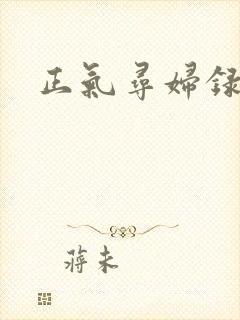 正氣尋婦錄
蔣未